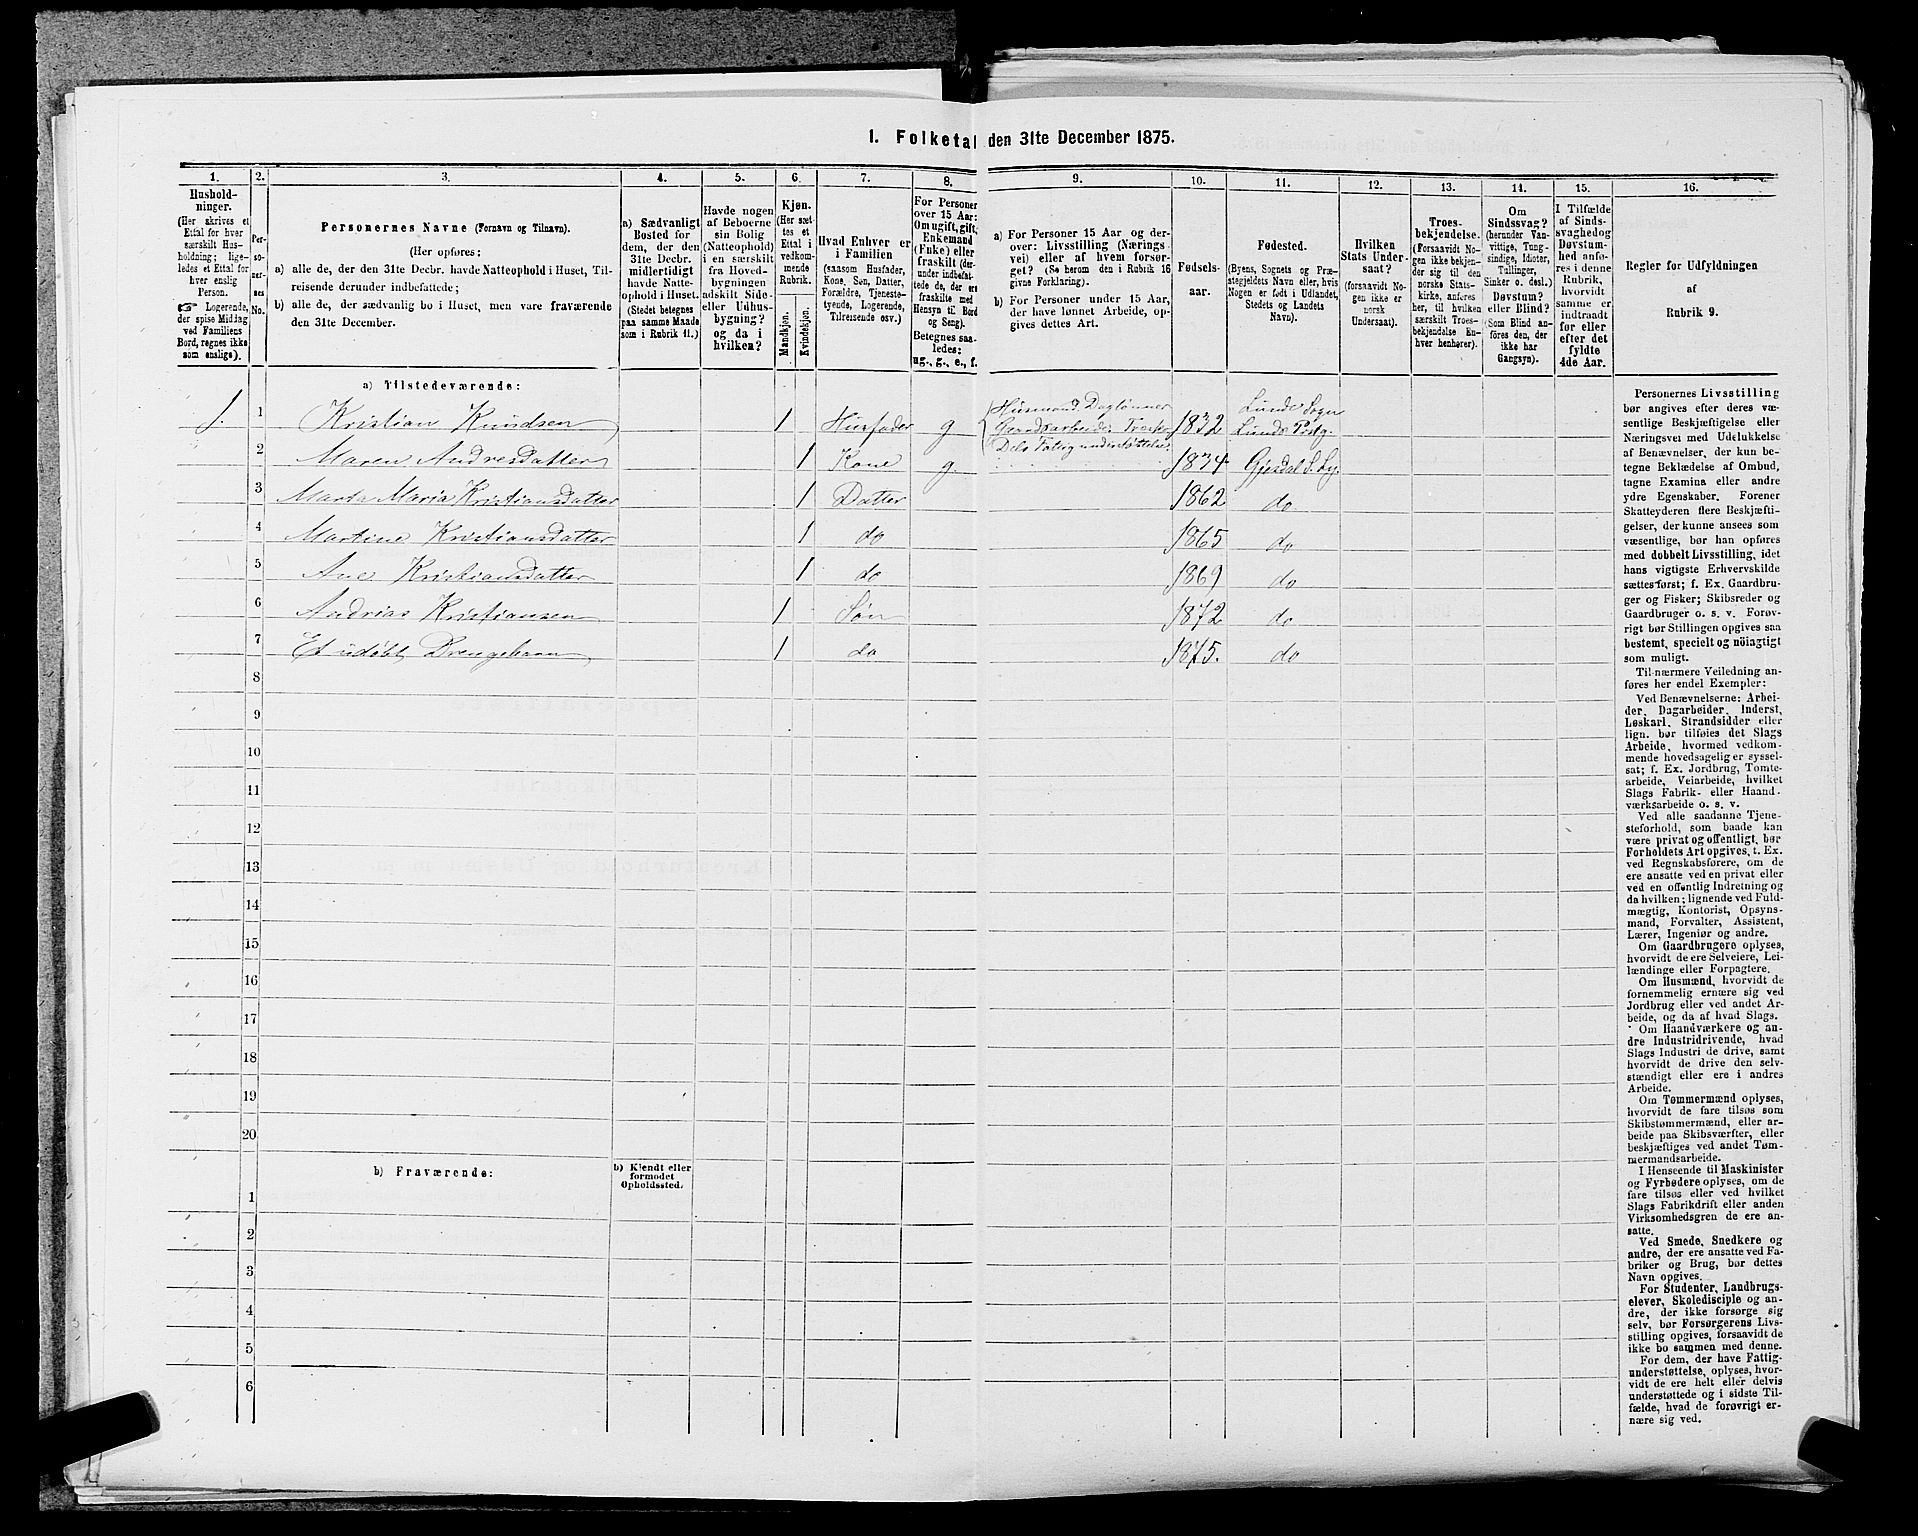 1. Folketal den 31te December 1875.
1.
Hushold-
ninger.
(Her skrives et
Ettal for hver
særskilt Hus-
holdning; lige-
ledes et Ettal for
hver enslig
Person.
☞ Logerende,
der spise Middag
ved Familiens
Bord, regnes ikke
som enslige).
2.
Per-
so-
ner-
nes
No.
3.
Personernes Navne (Fornavn og Tilnavn).
(Her opføres:
a) alle de, der den 31te Decbr. havde Natteophold i Huset, Til-
reisende derunder indbefattede;
b) alle de, der sædvanlig bo i Huset, men vare fraværende
den 31te December.
4.
a) Sædvanligt
Bosted for
dem, der den
31te Decbr.
midlertidigt
havde Natte-
ophold i Huset.
(Stedet betegnes
paa samme Maade
som i Rubrik 11.)
5.
Havde nogen
af Beboerne
sin Bolig
(Natteophold)
i en særskilt
fra Hoved-
bygningen
adskilt Side-
eller Udhus-
bygning?
og da i
hvilken?
6.
Kjøn.
(Her sæt-
tes et
Ettal i
vedkom-
mende
Rubrik.
Mandkjøn.
Kvindekjøn.
7.
Hvad Enhver er
i Familien
(saasom Husfader,
Kone, Søn, Datter,
Forældre, Tjeneste-
tyende, Logerende,
Tilreisende osv.)
8.
For Personer
over 15 Aar:
Om ugift, gift,
Enkemand
(Enke) eller
fraskilt (der-
under indbefat-
tede de, der ere
fraskilte med
Hensyn til Bord
og Seng).
Betegnes saa-
ledes:
ug., g., e., f.
9.
a) For Personer 15 Aar og der-
over: Livsstilling (Nærings-
vei) eller af hvem forsør-
get? (Se herom den i Rubrik 16
givne Forklaring).
b) For Personer under 15 Aar,
der have lønnet Arbeide, op-
gives dettes Art.
10.
Fødsels-
aar.
11.
Fødested.
(Byens, Sognets og Præ-
stegjeldets Navn eller, hvis
Nogen er født i Udlandet,
Stedets og Landets
Navn).
12.
Hvilken
Stats Under-
saat?
(forsaavidt No-
gen ikke er
norsk
Undersaat).
13.
Troes-
bekjendelse.
(Forsaavidt No-
gen ikke bekjen-
der sig til den
norske Stats-
kirke, anføres
her, til hvilken
særskilt Troes-
bekjendelse En-
hver henhører).
14.
Om
Sindssvag?
(herunder Van-
vittige, Tung-
sindige, Idioter,
Tullinger,
Sinker o. desl.)
Døvstum?
eller Blind?
(Som Blind an-
føres den, der
ikke har
Gangsyn).
15.
I Tilfælde
af Sinds-
svaghed og
Døvstum-
hed anfø-
res i denne
Rubrik,
hvorvidt
samme er
indtraadt
før eller
efter det
fyldte
4de Aar.
16.
Regler for Udfyldningen
af
Rubrik 9.
a) Tilstedeværende:
1. 1 Kristian Knudsen 1 Husfader g Husmand. Daglønner Gaardsarbeide 1832 Lunde Sogn Lunde Prstg.
2 Maren Andresdatter 1 Kone g. 1834 Gjesdal
3 Marta Maria Kristiansdatter 1 Datter 1862 do
4 Martine Kristiansdatter 1 do 1865 do
5 Ane Kristiansdatter 1 do 1869 do
6 Andrias Kristiansen 1 Søn 1872 do
7 Et udøbt Drengebarn 1 do 1875. do
8
9
10
11
12
13
14
15
16
17
18
19
20
b) Fraværende:
b) Kjendt eller
formodet
Opholdssted.
1
2
3
4
5
6
Personernes Livsstilling
bør angives efter deres væ-
sentlige Beskjæftigelse eller
Næringsvei med Udelukkelse
af Benævnelser, der kun be-
tegne Beklædelse af Ombud,
tagne Examina eller andre
ydre Egenskaber. Forener
Skatteyderen flere Beskjæfti-
gelser, der kunne ansees som
væsentlige, bør han opføres
med dobbelt Livsstilling, idet
hans vigtigste Erhvervskilde
sættes først; f. Ex. Gaardbru-
ger og Fisker; Skibsreder og
Gaardbruger o. s. v. Forøv-
rigt bør Stillingen opgives saa
bestemt, specielt og nöiagtigt
som muligt.
Til nærmere Veiledning an-
føres her endel Exempler:
Ved Benævnelserne: Arbei-
der, Dagarbeider, Inderst,
Løskarl, Strandsidder eller
lign. bør tilføies det Slags
Arbeide, hvormed vedkom-
mende hovedsagelig er syssel-
sat; f. Ex. Jordbrug, Tomte-
arbeide, Veiarbeide, hvilket
Slags Fabrik- eller Haand-
værksarbeide o. s. v.
Ved alle saadanne Tjene-
steforhold, som baade kan
være privat og offentligt, bør
Forholdets Art opgives, t. Ex.
ved Regnskabsførere, om de
ere ansatte ved en privat eller
ved en offentlig Indretning og
da hvilken; lignende ved Fuld-
mægtig, Kontorist, Opsyns-
mand, Forvalter, Assistent,
Lærer, Ingeniør og andre.
Om Gaardbrugere oplyses,
hvorvidt de ere Selveiere, Lei-
lændinge eller Forpagtere.
Om Husmænd, hvorvidt de
fornemmelig ernære sig ved
Jordbrug eller ved andet Ar-
beide, og da af hvad Slags.
Om Haandværkere og an-
dre Industridrivende, hvad
Slags Industri de drive, samt
hvorvidt de drive den selv-
stændigt eller ere i andres
Arbeide.
Om Tømmermænd oplyses,
hvorvidt de fare tilsøs som
Skibstømmermænd, eller ar-
beide paa Skibsværfter, eller
beskjæftiges ved andet Tøm-
mermandsarbeide.
I Henseende til Maskinister
og Fyrbødere oplyses, om de
fare tilsøs eller ved hvilket
Slags Fabrikdrift eller anden
Virksomhedsgren de ere an-
satte.
Ved Smede, Snedkere og
andre, der ere ansatte ved Fa-
briker og Brug, bør dettes
Navn opgives.
For Studenter, Landbrugs-
elever, Skoledisciple og an-
dre, der ikke forsørge sig
selv, bør Forsørgerens Livs-
stilling opgives, forsaavidt de
ikke bo sammen med denne.
For dem, der have Fattig-
understøttelse, oplyses, hvor-
vidt de ere helt eller delvis
understøttede og i sidste Til-
fælde, hvad de forøvrigt er-
nære sig ved.